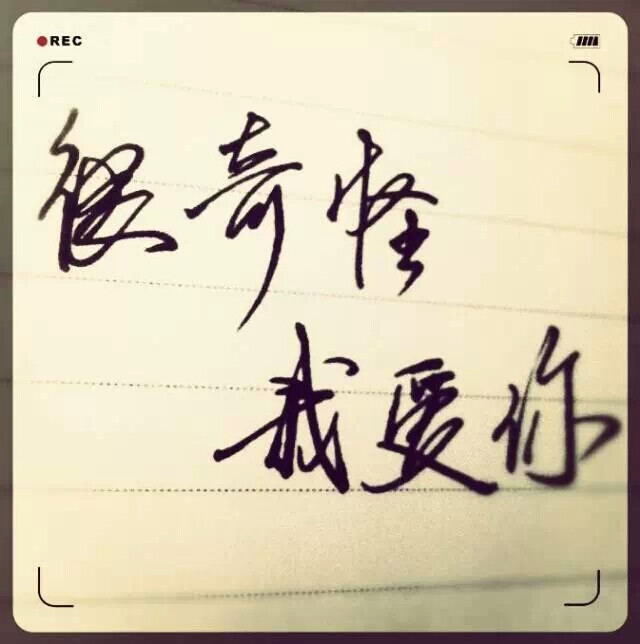 REC
很奇怪
我爱你